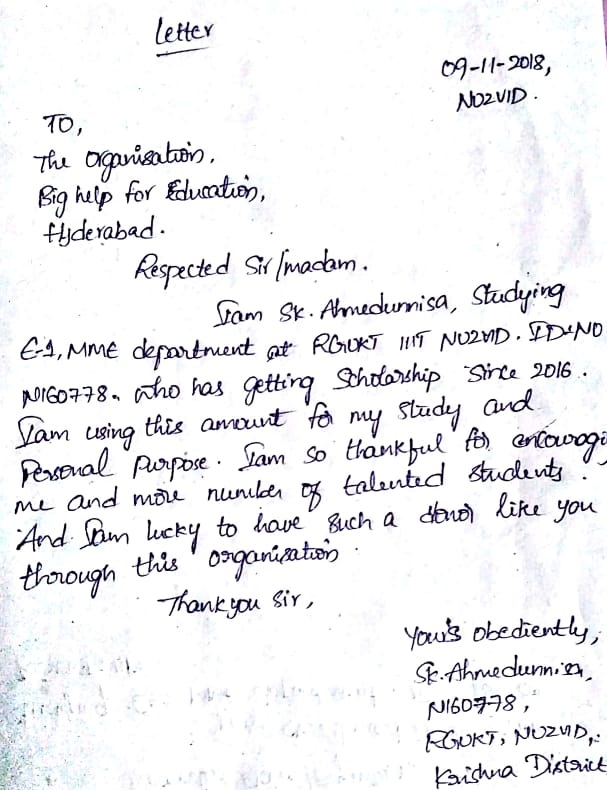 Letter
09-11-2018,
NUZVID.
TO,
The Organisation,
Big help for Education,
Hyderabad.
Respected Sir/madam.
Iam Sk. Ahmedunnisa, Studying
E-1, MME department at RGUKT IIIT NUZVID. ID NO
N160778. who has getting Scholarship Since 2016.
Iam using this amount for my study and
Personal Purpose. Iam so thankful for encouragi
me and more number of talented students.
And Iam lucky to have such a donor like you
through this organisation.
Thankyou Sir,
Your's obediently,
Sk. Ahmedunnisa,
N160778,
RGUKT, NUZVID,
Krishna District